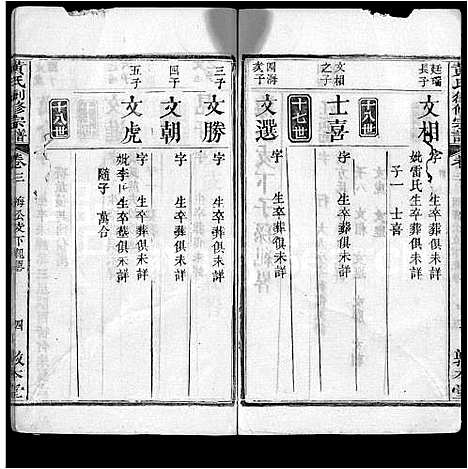 廷瑞長子
文相
字 生卒葬俱未詳
妣雷氏生卒葬俱未詳
子一 士喜
文相之子
士喜
字 生卒葬俱未詳
十七世
四海亥子
文選
字 生卒葬俱未詳
三子
文勝
字 生卒葬俱未詳
四子
文朝
字 生卒葬俱未詳
五子
文虎
字 生卒葬俱未詳
妣李 生卒葬俱未詳
隨子 萬合
十八世
黃氏創修宗譜
卷三
四
敦本堂
敦本堂